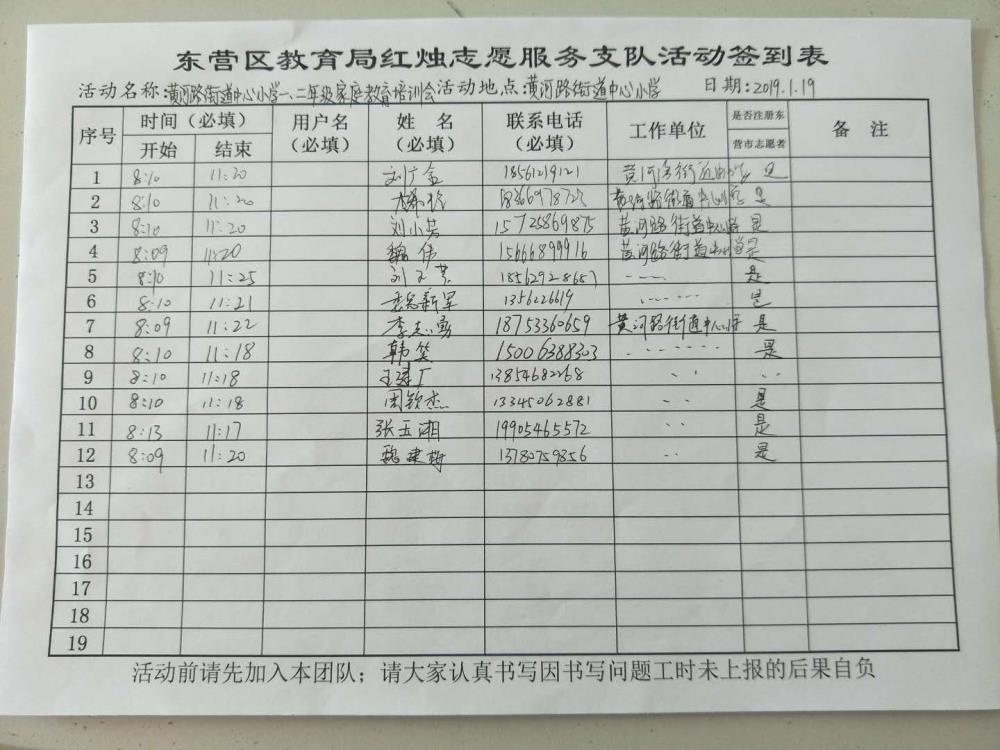 东营区教育局红烛志愿服务支队活动签到表
活动名称:黄河路街道中心小学一、二年级家庭教育培训会 活动地点:黄河路街道中心小学 日期:2019.1.19
序号 时间（必填） 用户名（必填） 姓 名（必填） 联系电话（必填） 工作单位 是否注册东营市志愿者 备 注
开始 结束
1 8:10 11:20 刘广金 18561219121 是
2 8:10 11:20 黄河路街道中心小学 是
3 8:10 11:20 刘小英 15725869875 黄河路街道中心小学 是
4 8:09 11:20 魏伟 15666899916 黄河路街道中心小学 是
5 8:10 11:25 刘文芳 18562928687 是
6 8:10 11:21 1356226619 是
7 8:09 11:22 李志勇 18753360659 黄河路街道中心小学 是
8 8:10 11:18 韩笑 15006388303 是
9 8:10 11:18 13854682268
10 8:10 11:18 周钦杰 13345062881 是
11 8:13 11:17 张玉湘 19905465572 是
12 8:09 11:20 魏建梅 13780759856 是
13
14
15
16
17
18
19
活动前请先加入本团队；请大家认真书写因书写问题工时未上报的后果自负